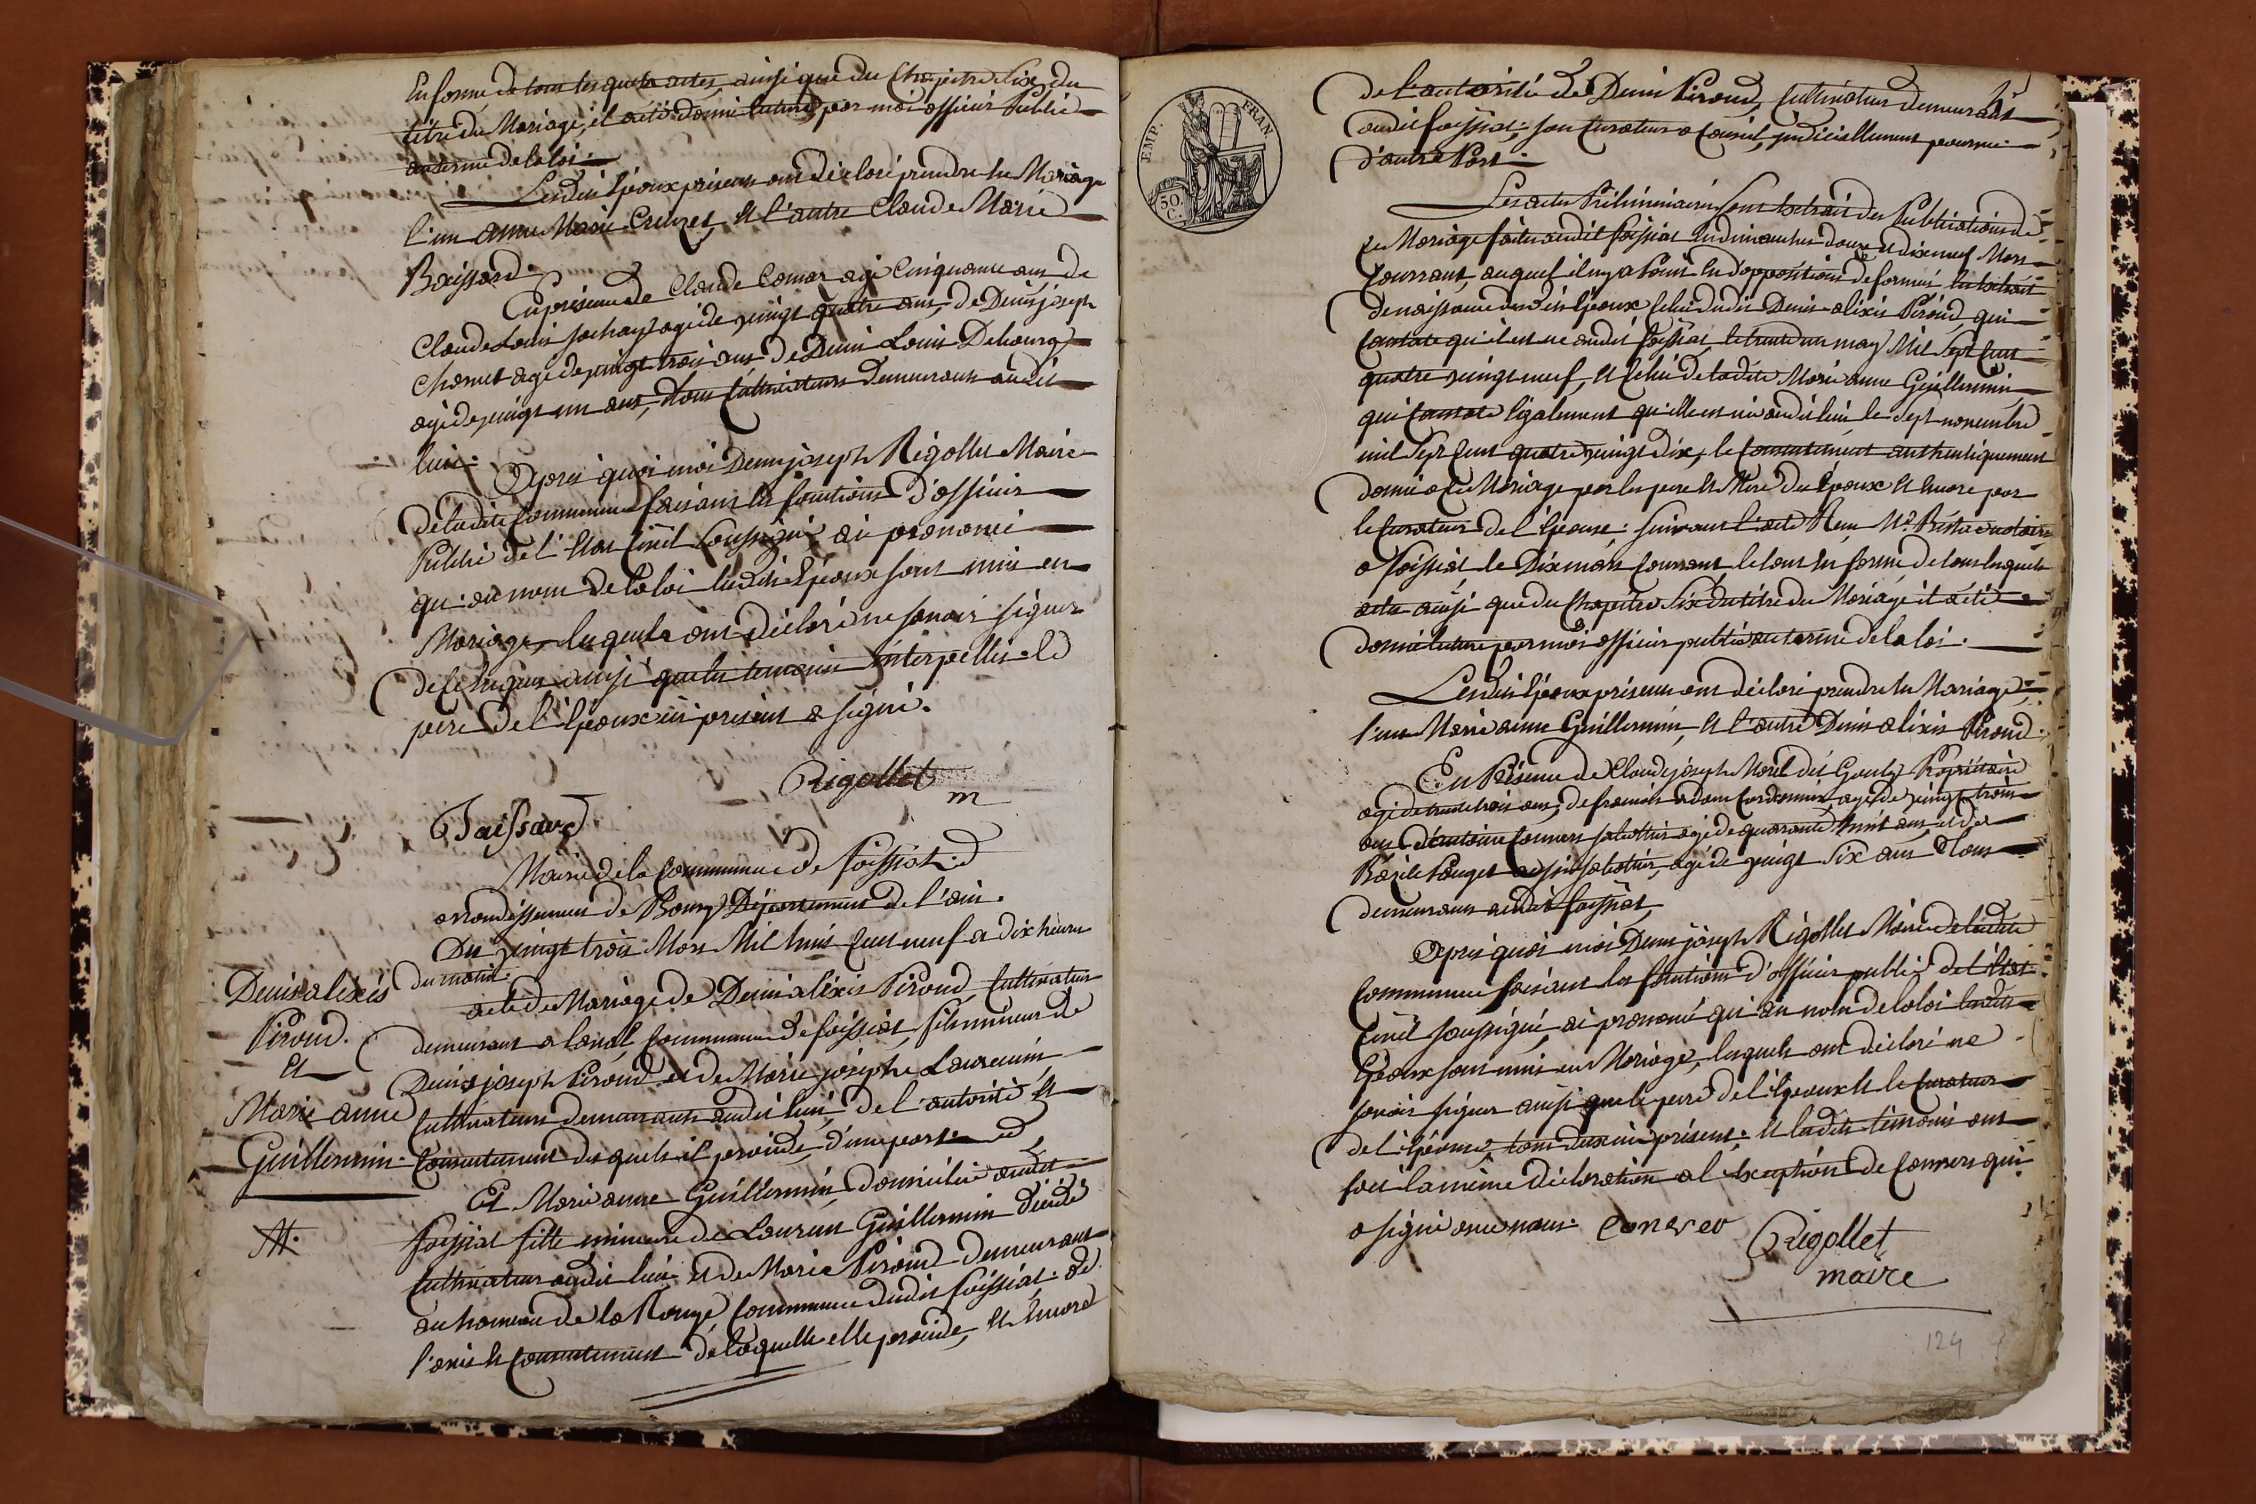 En forme de tous lesquels actes, ainsi que du Chapitre Six, du
titre du Mariage, il a été donné lecture par moi officier Public
au terme de la loi.
Lesdits Epoux présens ont déclaré prendre En Mariage
l'un anne Marie Creuzet, Et l'autre Claude Marie
Boissard.
En présence de Claude Comas agé Cinquante ans, de
Claude Louis Jachay agé de vingt quatre ans, de Denis joseph
Charnet agé de vingt trois ans de Denis Louis Debourg
agé de vingt un ans, Tous Cultivateurs demeurans audit
lieu.
Après quoi moi Denis joseph Rigollet Maire
de ladite Commune faisant les fonctions d'officier
Public de l'Etat Civil soussigné, ai prononcé
qu'au nom de la loi lesdits Epoux sont unis en
Mariage, lesquels ont déclaré ne savoir signer
de ce requis ainsi que les temoins interpellés, le
pere de l'Epoux ici présent a signé.
Rigollet
m
Mairie de la Commune de foissiat
arrondissement de Bourg Département de l'ain.
Du vingt trois Mars Mil huit Cent neuf a dix heures
du matin.
Denis alexis
Piroud.
Et
Marie anne
Guillermin.
M.
acte de Mariage de Denis alexis Piroud, Cultivateur
demeurant a Laval, Commune de foissiat, fils mineur de
Denis joseph Piroud et de Marie josephte Laurencin
Cultivateurs demeurans audit lieu, de l'autorité Et
Consentement desquels il procede, d'une part.
Et Marie anne Guillermin, domiciliée audit
foissiat fille mineure de Laurent Guillermin décédé
Cultivateur audit lieu Et de Marie Piroud demeurant
au hameau de la Rouge, Commune dudit foissiat, de
l'avis Et Consentement de laquelle elle procede, Et Encore
EMP. FRAN.
50 C.
de l'autorité de Denis Piroud, Cultivateur demeurant
audit foissiat, son Curateur a Conseil, judiciellement pourvu
d'autre Part.
Les actes Préliminaires sont Extrait des Publications de
ce Mariage faites audit foissiat les dimanches douze et dix neuf Mars
Courrant, auquel il n'y a Point Eu d'opposition de formée, les Extraits
de naissance desdits Epoux Celui dudit Denis alexis Piroud, qui
Constate qu'il est né audit foissiat le trente un may Mil Sept Cent
quatre vingt neuf, Et Celui de ladite Marie anne Guillermin,
qui Constate Egalement qu'elle est née audit lieu le sept novembre
mil Sept Cent quatre vingt dix, le Consentement authentiquement
donné a ce Mariage par les pere Et Mere de l'Epoux Et Encore par
le Curateur de l'Epouse, suivant l'acte Reçu Me notaire
a foissiat le Dix mars Courrant, le tout En forme de tous lesquels
actes ainsi que du Chapitre Six du titre du Mariage il a été
donné lecture par moi officier public au terme de la loi.
Lesdits Epoux présens ont déclaré prendre En Mariage,
l'un Marie anne Guillermin, Et l'autre Denis alexis Piroud.
En Présence de Claude joseph Morel dit Gouly Propriétaire
agé de trente trois ans, de francois adam Cordonnier, agé de vingt trois
ans, d'antoine Convers sabottier agé de quarante huit ans, et de
Bazile Pauget aussi sabotier, agé de vingt Six ans, Tous
demeurans audit foissiat,
Après quoi moi Denis joseph Rigollet Maire de ladite
Commune faisant les fonctions d'officier public de l'Etat
Civil soussigné, ai prononcé qu'au nom de la loi lesdits
Epoux sont unis en Mariage, lesquels ont déclaré ne
savoir signer ainsi que le pere de l'Epoux Et le Curateur
de l'Epouse, tous deux ici présens, Et lesdits témoins ont
fait la même déclaration a l'Exception de Convers qui
a signé avec nous. Conver Rigollet
maire
124